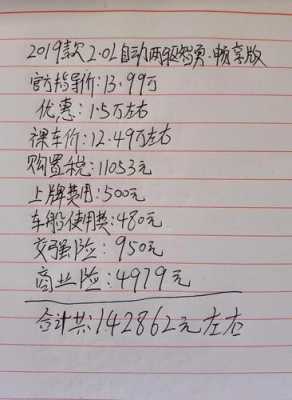 2019款2.0L自动两驱智享·畅享版
官方指导价:13.99万
优惠:1.5万左右
裸车价:12.49万左右
购置税:11053元
上牌费用:500元
车船使用费:480元
交强险:950元
商业险:4979元
合计共:142862元左右